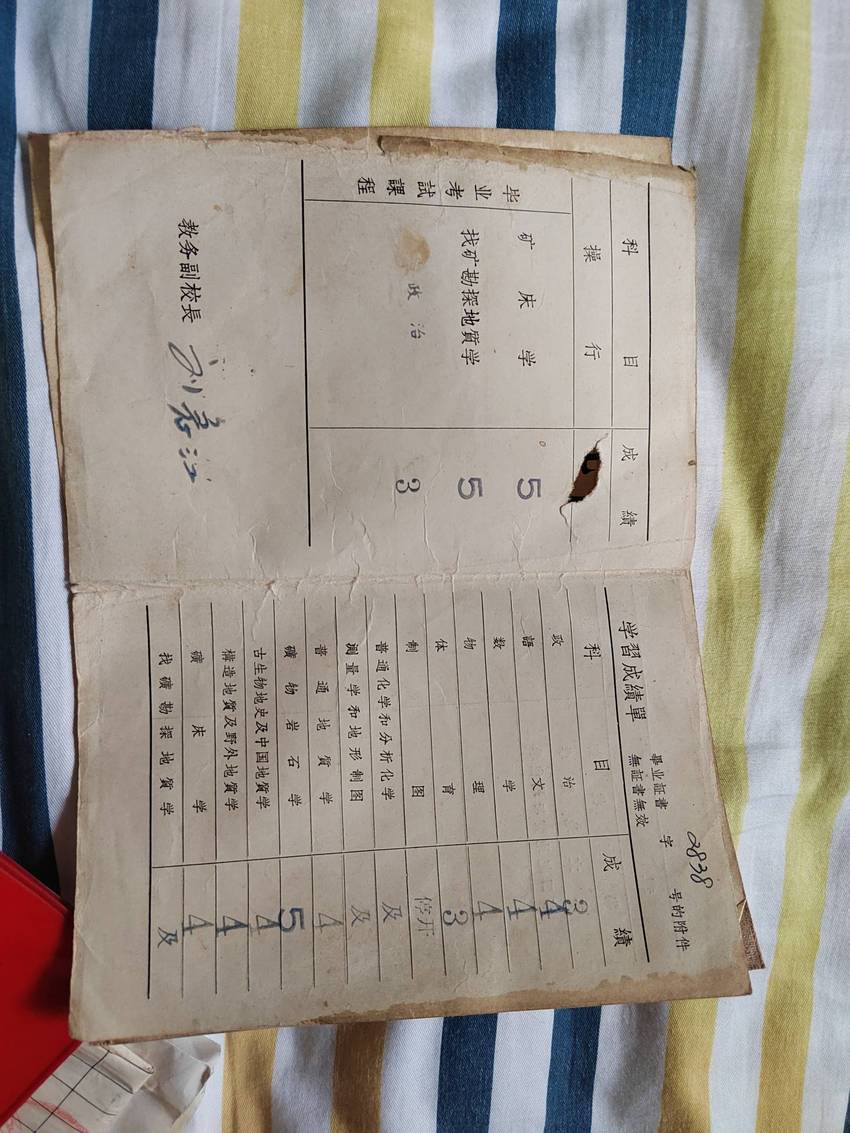 科目 成績
操行
毕业考試課程
矿床学 5
找矿勘探地質学 5
政治 3
教务副校長
畢業証書 字 2838 号的附件
無証書無效
学習成績單
科目 成績
政治 3
語文 4
数学 4
物理 4
体育 3
制图 停开
普通化学和分析化学 及
測量学和地形制图 及
普通地質学 4
礦物岩石学 5
古生物地史及中国地質学 4
構造地質及野外地質学 4
礦床学 4
找礦勘探地質学 及